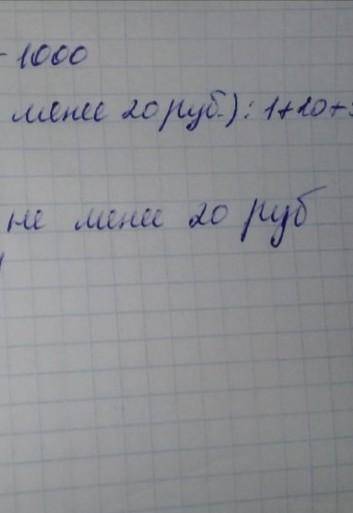 - 1000
менее 20 руб.): 1+20+
не менее 20 руб